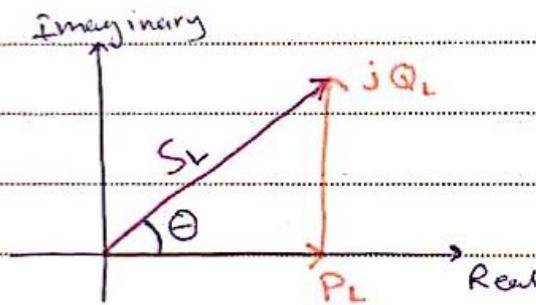 Imaginary
jQL
SL
Θ
Real
PL